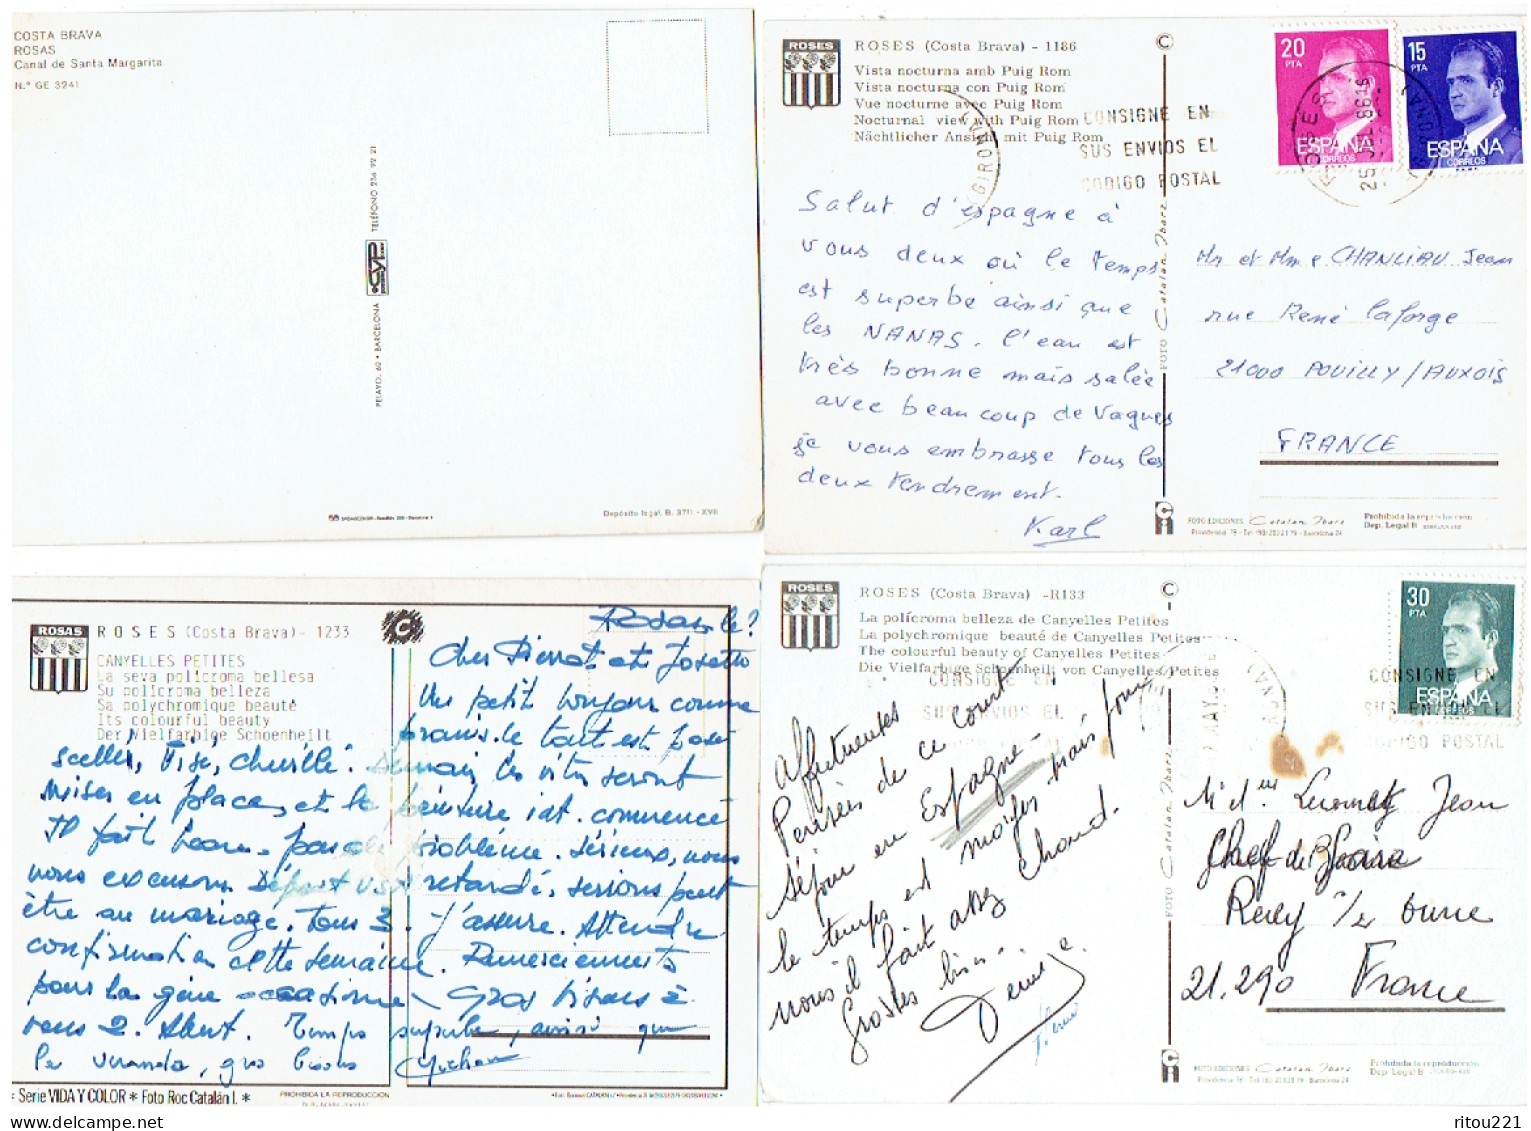 COSTA BRAVA
ROSAS
Canal de Santa Margarita
N.° GE 3241
PELAYO, 60 • BARCELONA
CYP
TELÉFONO 236 92 21
Depósito legal. B. 3711.-XVII
ROSES
ROSES (Costa Brava) - 1186
Vista nocturna amb Puig Rom
Vista nocturna con Puig Rom
Vue nocturne avec Puig Rom
Nocturnal view with Puig Rom
Nächtlicher Ansicht mit Puig Rom
CONSIGNE EN
SUS ENVIOS EL
CODIGO POSTAL
GIRONA
20
PTA
ESPAÑA
CORREOS
15
PTA
ESPAÑA
CORREOS
Salut d'espagne à
vous deux où le temps
est superbe ainsi que
les NANAS. l'eau est
très bonne mais salée
avec beaucoup de vagues
je vous embrasse tous les
deux tendrement.
Karl
FOTO Catalan Ibarz
Mr et Mme CHANLIAU Jean
rue René laforge
21000 POUILLY/AUXOIS
FRANCE
FOTO EDICIONES Catalan Ibarz
Prohibida la reproducción
Dep. Legal B
ROSAS
ROSES (Costa Brava) - 1233
CANYELLES PETITES
La seva policroma bellesa
Su policroma belleza
Sa polychromique beauté
Its colourful beauty
Der Vielfarbige Schoenheilt
Rosas le ?
Cher Pierrot et Josette
Un petit bonjour comme
promis. le tout est posé
sceller, Visé, cheville. Demain les vitres seront
mises en place, et la peinture est commencé
Il fait beau. pas de problème. Sérieux, nous
nous excusons retardé. serions peut
être au mariage. Tous 3. j'assure. Attendre
confirmation cette semaine. Remerciements
pour la gêne occasionné. Gros bisous à
vous 2. Albert. Temps superbe, ainsi que
la veranda, gros bisous
* Serie VIDA Y COLOR * Foto Roc Catalán I. *
PROHIBIDA LA REPRODUCCION
ROSES
ROSES (Costa Brava) -R133
La polícroma belleza de Canyelles Petites
La polychromique beauté de Canyelles Petites
The colourful beauty of Canyelles Petites
Die Vielfarbige Schoenheilt von Canyelles Petites
CONSIGNE EN
SUS ENVIOS EL
CONSIGNE EN
SUS ENVIOS EL
CODIGO POSTAL
30
PTA
ESPAÑA
CORREOS
Affectueuses
Pensées de ce court
séjour en Espagne -
le temps est moyen mais pour
nous il fait assez chaud.
Grosses bises.
Denise
FOTO Catalan Ibarz
Jean
Chef de Gare
France
21.290
FOTO EDICIONES Catalan Ibarz
Prohibida la reproducción
Dep. Legal B
ritou221